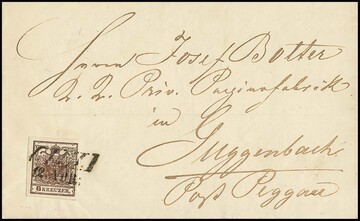 Herrn Josef Botter
K. K. Priv. Papierfabrik
in
Guggenbach
Post Peggau
6 KREUZER